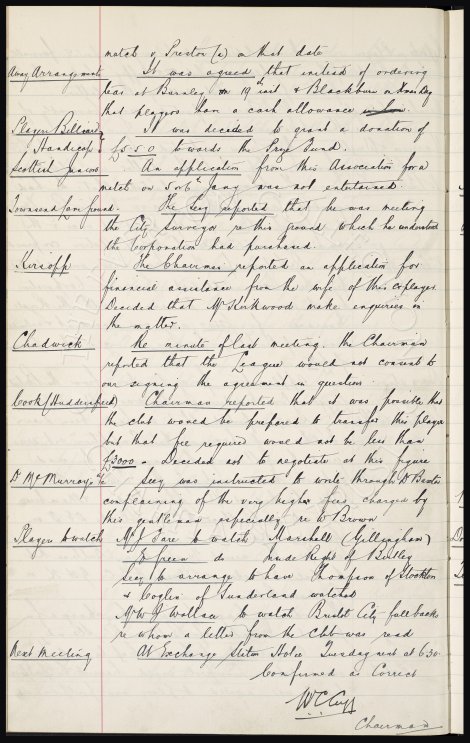 match v. Preston (a) on that date
Away Arrangements It was agreed that instead of ordering
teas at Burnley on 19th inst & Blackburn on Xmas Day
that players have a cash allowance
Player Billiard It was decided to grant a donation of
Handicap £5.5.0 towards the Prize Fund.
Scottish Juniors An application from this Association for a
match on 5 or 6th Jany was not entertained.
Townsend Lane Ground. The Secy reported that he was meeting
the City Surveyor re this ground which he understood
the Corporation had purchased.
Kirsopp The Chairman reported an application for
financial assistance from the wife of this explayer.
Decided that Mr Kirkwood make enquiries in
the matter.
Chadwick Re minute of last meeting, the Chairman
reported that the League would not consent to
our signing the agreement in question.
Cook (Huddersfield) Chairman reported that it was possible that
the club would be prepared to transfer this player
but that fee required would not be less than
£3000. Decided not to negotiate at this figure
Dr McMurray Secy was instructed to write through Dr Baxter
complaining of the very high fees charged by
this gentleman especially re W Brown.
Players to watch Mr J Fare to watch Marshall (Gillingham)
Green do Right of
Secy to arrange to have Thompson of Stockton
& Coglin of Sunderland watched
Mr W J Wallace to watch Bristol City full backs
re whom a letter from the club was read
Next Meeting At Exchange Station Hotel Tuesday next at 6.30.
Confirmed as Correct
W C Cuff
Chairman